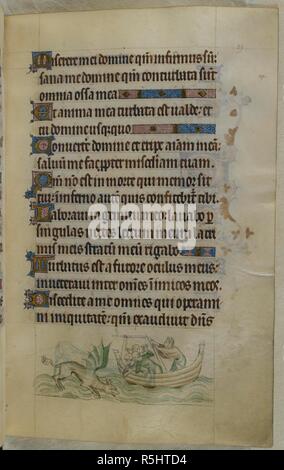 Miserere mei domine qm infirmus sũ:
sana me domine qm conturbata sũt
omnia ossa mea
Et anima mea turbata est valde: et
tu domine usq quo
Convertẽ domine et eripe aĩam meã:
salvũ me fac ppter misc̃iam tuam.
Qm̃ nõ est in morte qui memor sit
tui: in ferno autẽ quis confitebit᷑ tibi.
Laboravi in gemitu meo: lavabo p
singulas noctes lectum meum: lacri
mis meis stratũ meũ rigabo
Turbatus est a furore oculus meus:
inveteravi inter om̃es inimicos meos.
Discedite a me omnes qui operami
ni iniquitatẽ: qm̃ exaudivit dñs
alamy
Image ID: R5HTD4
www.alamy.com